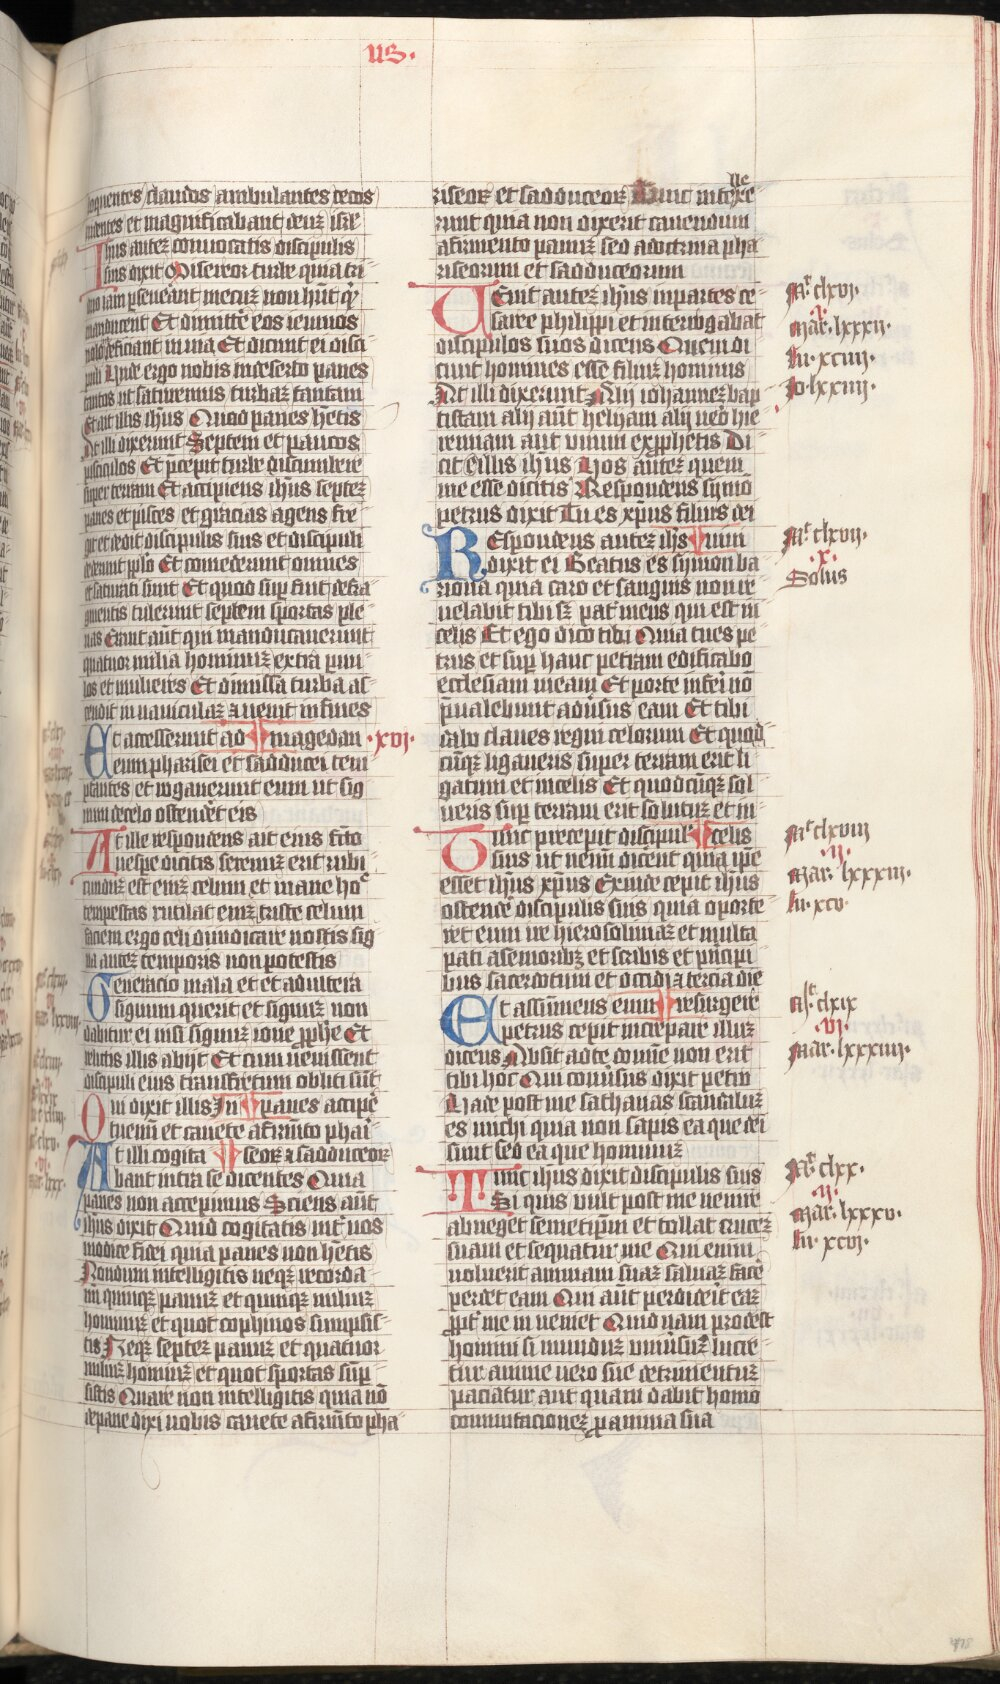 us.
loquentes claudos ambulantes cecos
videntes et magnificabant deuz isrl
Ihus autez convocatis discipulis
suis dixit Misereor turbe quia tri
duo iam pseverant mecuz non hnt qd
manducent Et dimitte eos ieiunos
nolo ne deficiant in via Et dicunt ei disci
puli Unde ergo nobis in deserto panes
tantos ut saturemus turbaz tantam
Et ait illis ihus Quod panes hetis
At illi dixerunt Septem et paucos
pisciculos Et pcepit turbe discumbere
super terram Et accipiens ihus septez
panes et pisces et gracias agens fre
git et dedit discipulis suis et discipuli
dederunt pplo Et comederunt omnes
et saturati sunt Et quod supfuit de fra
gmentis tulerunt septem sportas ple
nas Erant aut qui manducaverunt
quatuor milia hominuz extra pvu
los et mulieres Et dimissa turba as
cendit in naviculaz et venit in fines
Et accesserunt ad magedan .xvi.
eum pharisei et saducei tem
ptantes et rogaverunt eum ut sig
num de celo ostenderet eis
At ille respondens ait eius fcto
vespe dicitis serenuz erit rubi
cunduz est eniz celum et mane ho
tempestas rutilat eniz triste celum
faciem ergo celi diiudicare nostis sig
na autez temporis non potestis
Generacio mala et et adultera
signum querit et signuz non
dabitur ei nisi signuz ione pphe Et
relictis illis abijt Et cum venissent
discipuli eius transfretum obliti sut
Qui dixit illis In panes accipe
tuemi et cavete a frmto phari
At illi cogita seoz et saduceor
bant intra se dicentes Quia
panes non accepimus Sciens aut
ihus dixit Quid cogitatis int vos
modice fidei quia panes non hetis
Nondum intelligitis neqz recorda
mi quinqz panuz et quinqz miliuz
hominuz et quot cophinos sumpsis
tis Neqz septez panuz et quatuor
miliuz hominuz et quot sportas sup
sistis Quare non intelligitis quia no
de pane dixi vobis cavete a frmto pha
riseoz et saduceoz Tunc intexe
lle
runt quia non dixerit cavendum
a frmento panuz sed a doctrina pha
riseorum et saduceorum
Venit autez ihus in partes ce
saree philippi et interrogabat
discipulos suos dicens Quem di
cunt homines esse filiuz hominis
At illi dixerunt Alij iohannez bap
tistam alij aut helyam alij vero hie
remiam aut unum ex pphetis Di
cit Eillis ihus Vos autez quem
me esse dicitis Respondens symo
petrus dixit Tu es xpus filius dei
Respondens autez ihs vivi
dixit ei Beatus es symon ba
riona quia caro et sanguis non re
velabit tibi sz pat meus qui est in
celis Et ego dico tibi Quia tu es pe
trus et sup hanc petram edificabo
ecclesiam meam Et porte inferi no
pvalebunt adversus eam Et tibi
dabo claves regni celorum Et quod
cuqz ligaveris super terram erit li
gatum et in celis Et quodcuqz sol
veris sup terram erit solutuz et in
Tunc precepit discipul celis
suis ut nemi dicent quia ipe
esset ihus xpus Exinde cepit ihus
ostende discipulis suis quia oporte
ret eum ire hierosolimaz et multa
pati a senioribz et scribis et pncipi
bus sacerdotum et occidi et tercia die
Et assumens eum resurgere
petrus cepit increpare illuz
dicens Absit a te domie non erit
tibi hoc Qui conversus dixit petro
Vade post me sathanas scandaluz
es michi quia non sapis ea que dei
sunt sed ea que hominuz
Tunc ihus dixit discipulis suis
Si quis vult post me venire
abneget semetipm et tollat crucez
suam et sequatur me Qui enim
voluerit animam suaz salvaz face
perdet eam Qui aut perdiderit eaz
ppt me inveniet Quid nam prodest
homini si munduz universuz lucre
tur anime vero sue detrimentuz
paciatur aut quam dabit homo
commutacionez p anima sua
Mt clxvi.
.i.
Mar. lxxxii.
lu. xciiii.
Io. lxxiiii.
Mt clxvii.
.x.
Solus
Mt clxviii
.ii.
Mar. lxxxiii.
lu. xcv.
Mt. clxix
.vi.
Mar. lxxxiiii.
Mt clxx.
.ii.
Mar. lxxxv.
lu. xcvi.